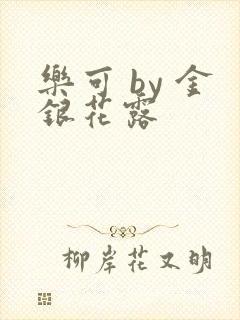 樂可 by 金
銀花露
柳岸花又明